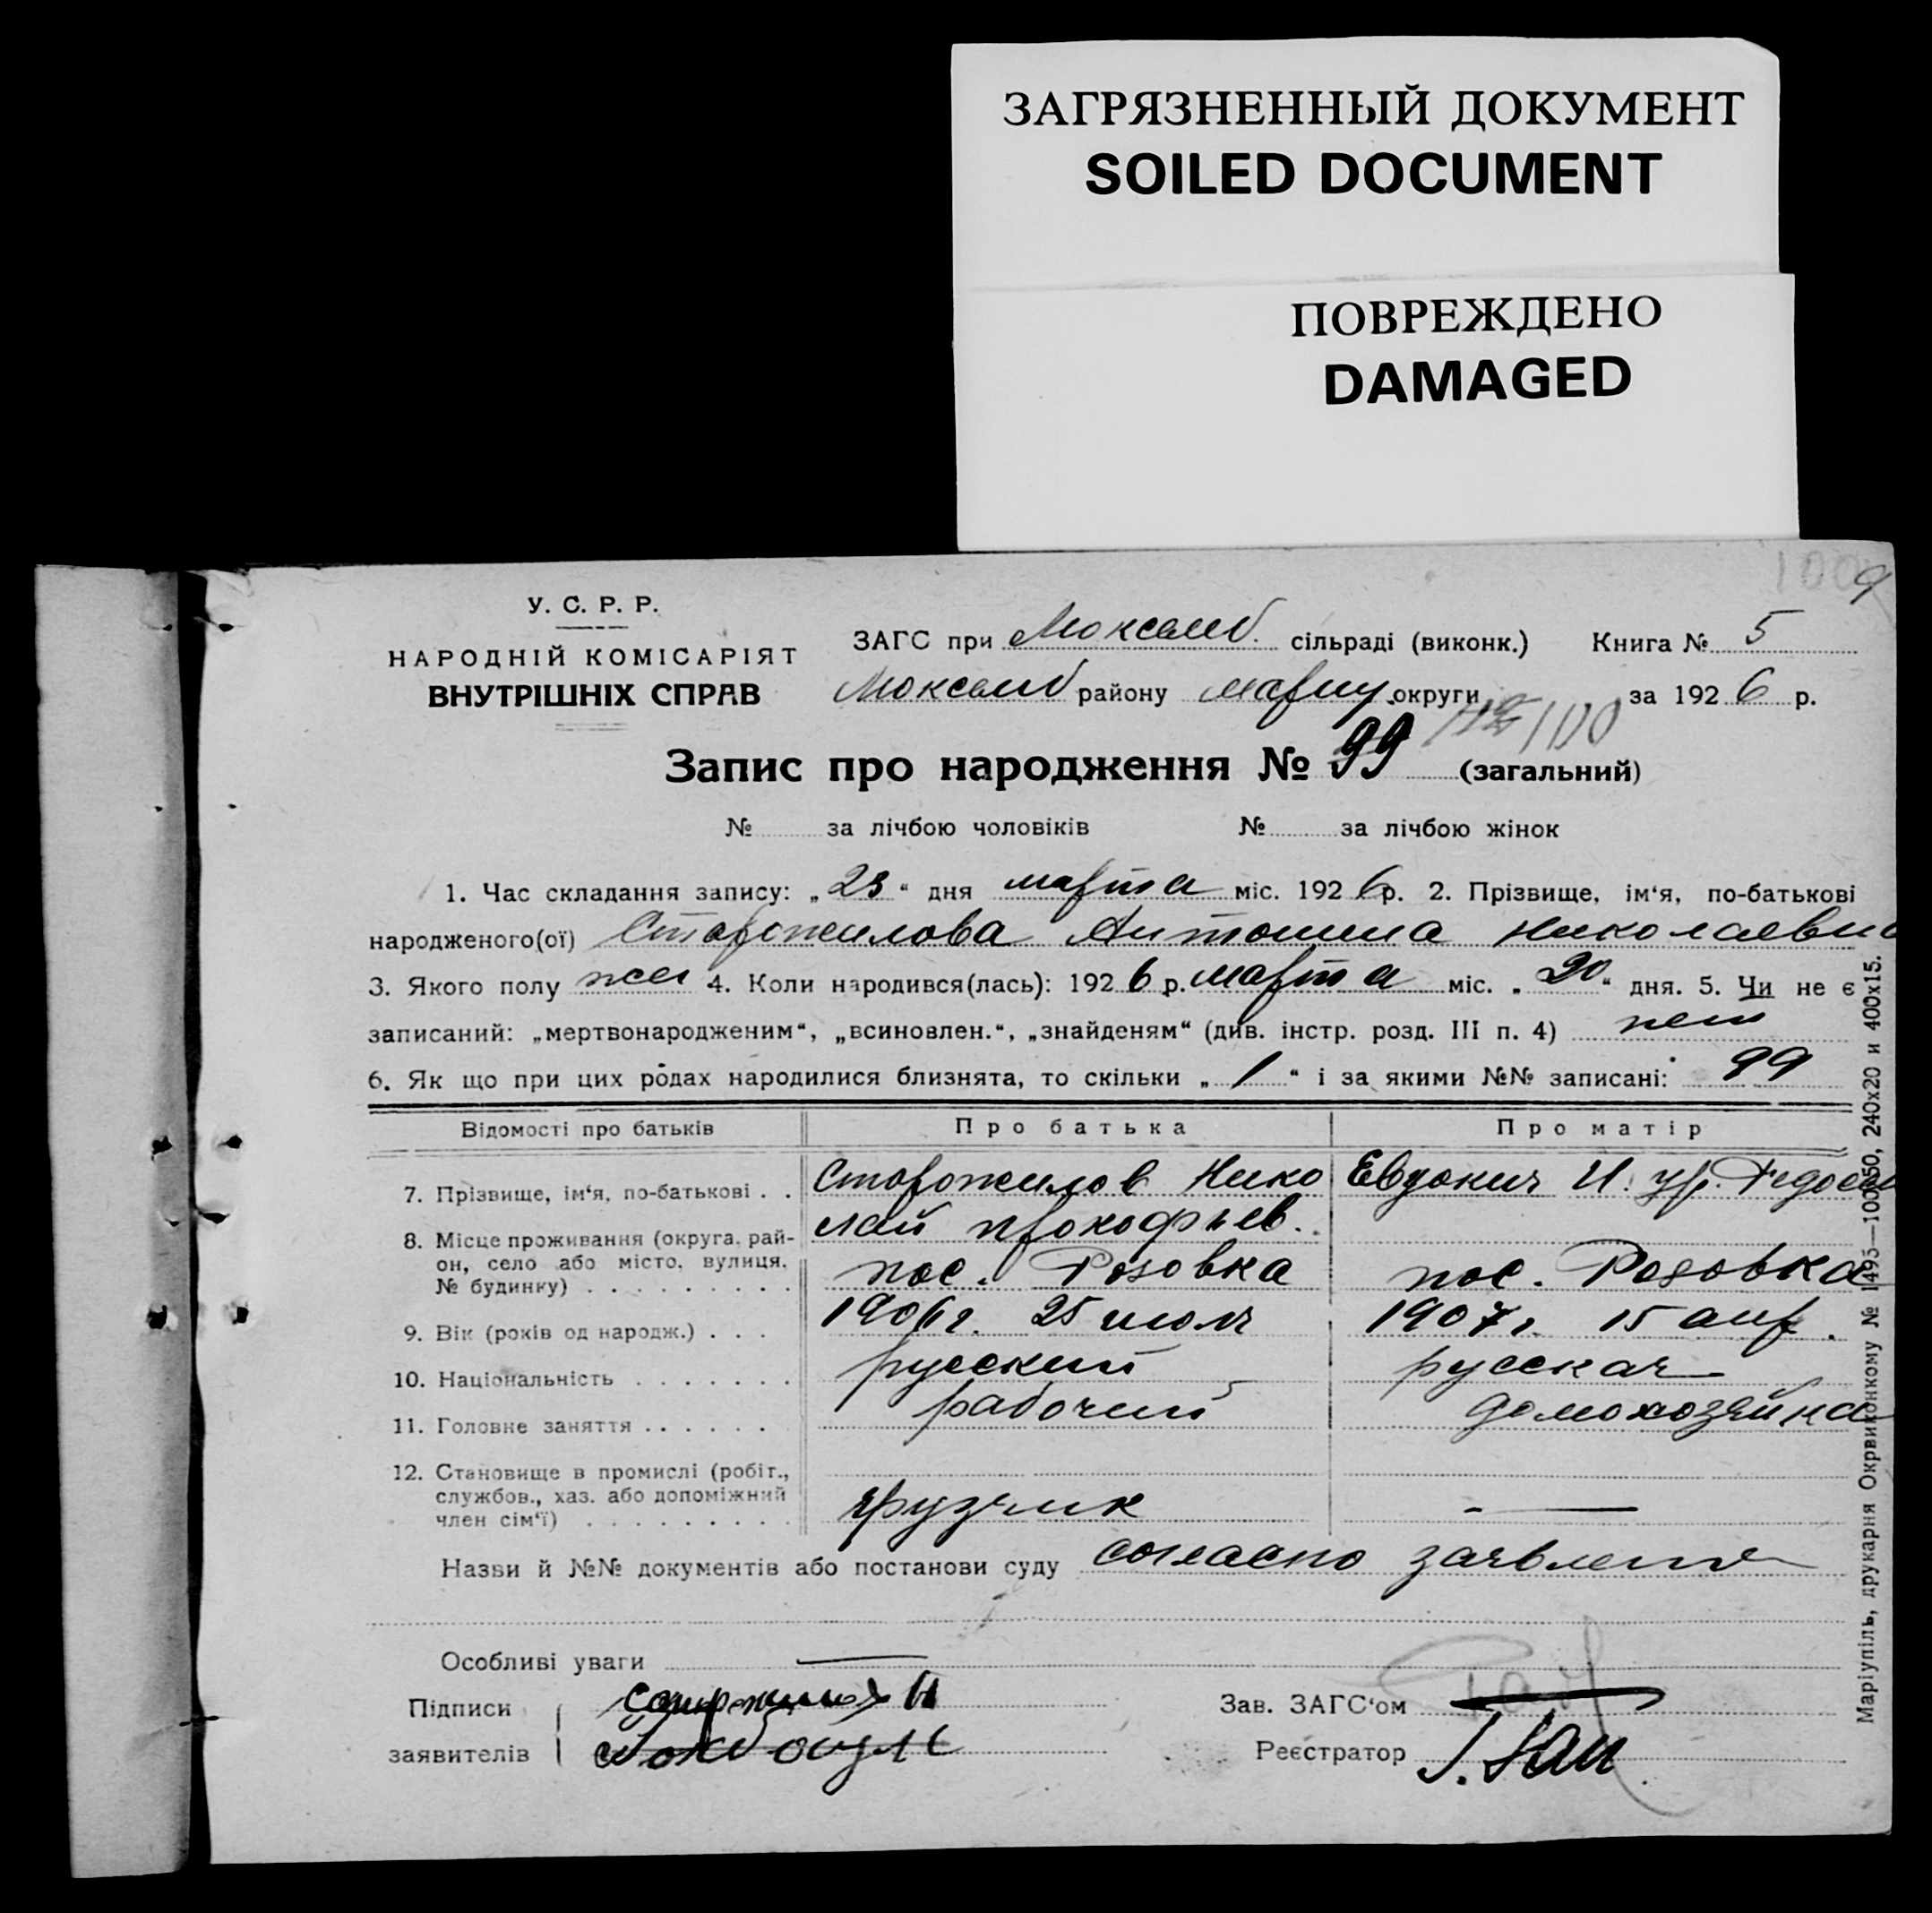 ЗАГРЯЗНЕННЫЙ ДОКУМЕНТ
SOILED DOCUMENT
ПОВРЕЖДЕНО
DAMAGED
У. С. Р. Р.
НАРОДНІЙ КОМІСАРІЯТ
ВНУТРІШНІХ СПРАВ
ЗАГС при сільраді (виконк.) Книга № 5
району Мариу. округи за 1926 р.
Запис про народження № 99 (загальний)
№ за лічбою чоловіків № за лічбою жінок
1. Час складання запису: „23“ дня марта міс. 1926 р. 2. Прізвище, ім‘я, по-батькові
народженого(ої) Сторожилова Антонина Николаевна
3. Якого полу жен 4. Коли народився(лась): 1926 р. марта міс. „20“ дня. 5. Чи не є
записаний: „мертвонародженим“, „всиновлен.“, „знайденям“ (див. інстр. розд. III п. 4) нет
6. Як що при цих родах народилися близнята, то скільки „1“ і за якими №№ записані: 99
Відомості про батьків Про батька Про матір
7. Прізвище, ім‘я, по-батькові . . Сторожилов Нико Евдокия И. ур.
лай Прокофьев.
8. Місце проживання (округа, рай-
он, село або місто, вулиця,
№ будинку) . . . . . . . . . пос. Розовка пос. Розовка
9. Вік (років од народж.) . . . 1906 г. 25 июля 1907 г. 15 апр.
10. Національність . . . . . . . русский русская
11. Головне заняття . . . . . . рабочий домохозяйка
12. Становище в промислі (робіт.,
службов., хаз. або допоміжний
член сім‘ї) . . . . . . . . . грузчик —
Назви й №№ документів або постанови суду согласно заявления
Особливі уваги —
Підписи
заявителів
Зав. ЗАГС‘ом
Реєстратор
Маріупіль, друкарня Окрвиконкому № 1495—100х50, 240х20 и 400х15.